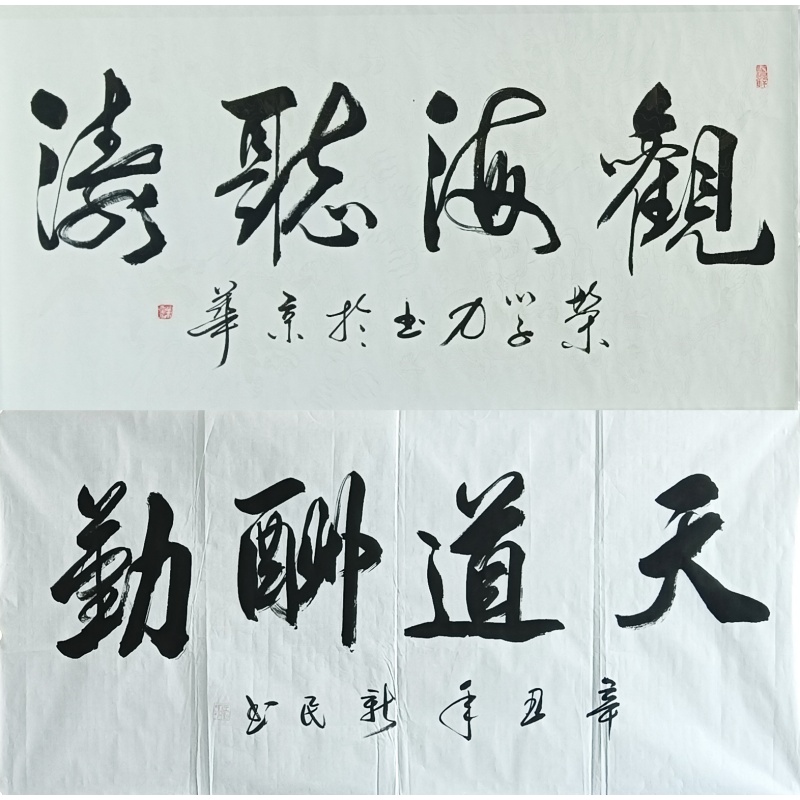 觀海聽濤
榮學力书於京華
天道酬勤
辛丑年新民书